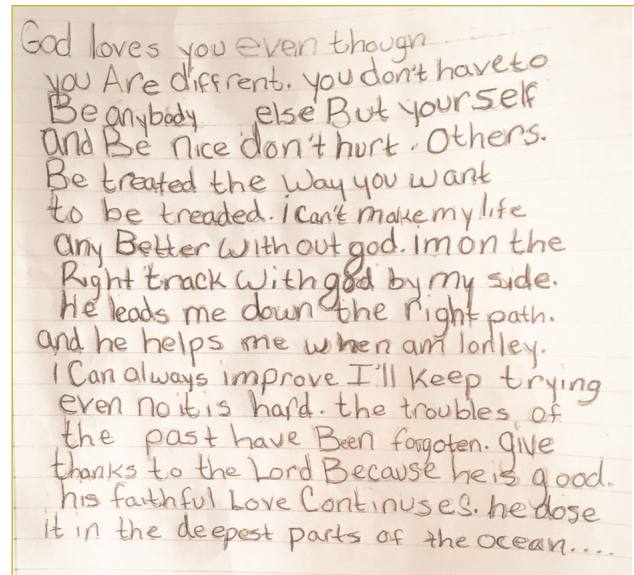 God loves you even though
you Are diffrent. you don't have to
Be anybody else But yourself
and Be nice don't hurt. Others.
Be treated the way you want
to be treaded. i can't make my life
any Better without god. im on the
Right track with god by my side.
He leads me down the right path.
and he helps me when am lonley.
I Can always improve I'll keep trying
even no it is hard. the troubles of
the past have Been forgoten. give
thanks to the Lord Because he is good.
his faithful Love Continuses. he dose
it in the deepest parts of the ocean....